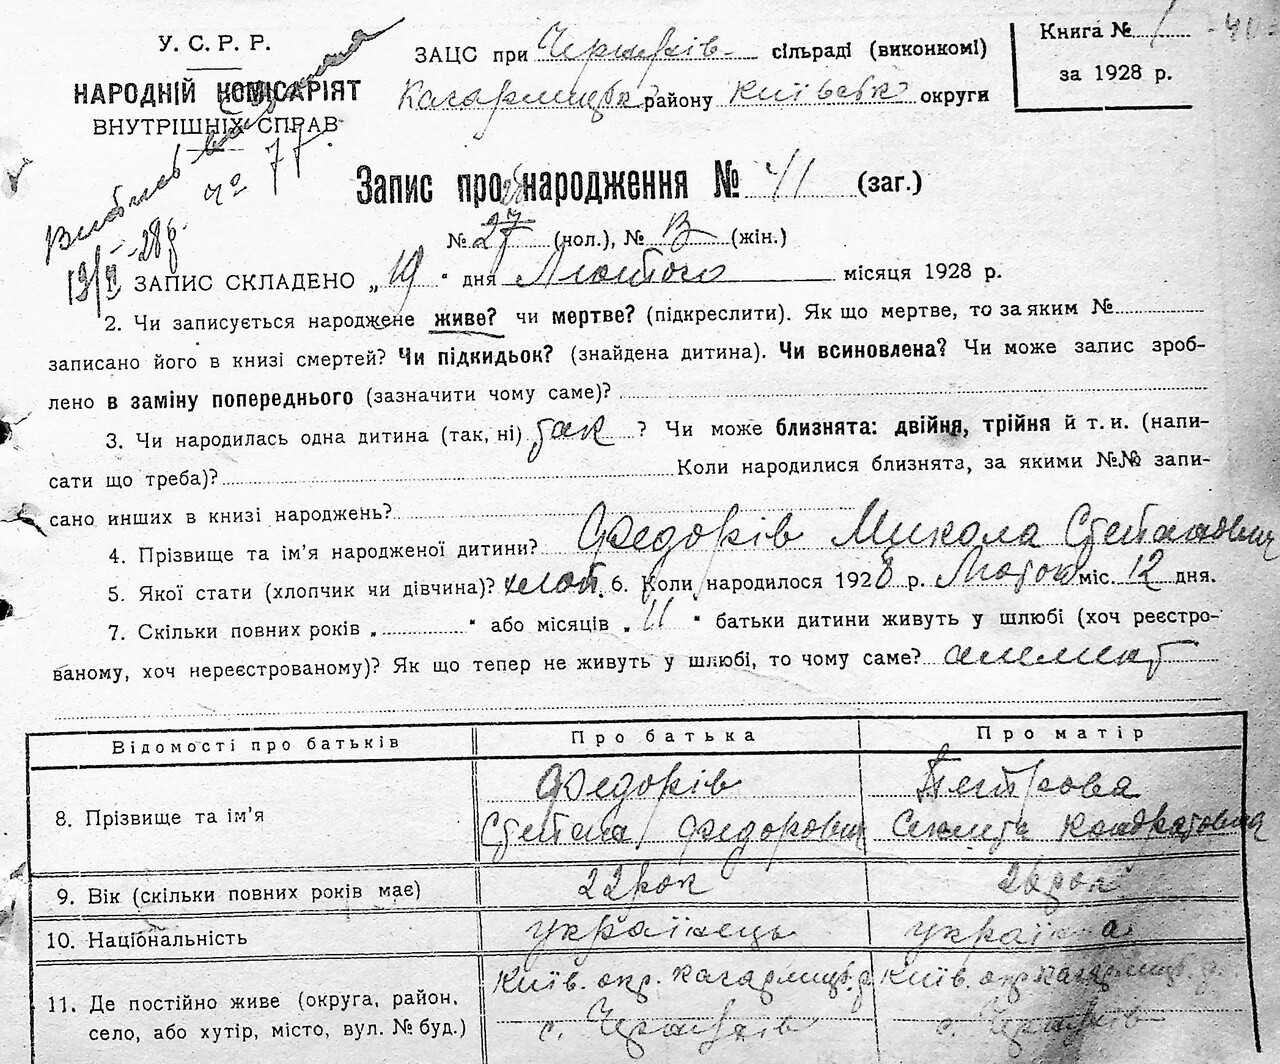 У. С. Р. Р.
НАРОДНІЙ КОМІСАРІЯТ
ВНУТРІШНІХ СПРАВ
№ 77.
ЗАЦС при сільраді (виконкомі)
Кагарлицьк району Київськ округи
Книга № 1
за 1928 р.
Запис про народження № 41 (заг.)
№ 27 (чол.), № (жін.)
ЗАПИС СКЛАДЕНО „ 19 “ дня Лютого місяця 1928 р.
2. Чи записується народжене живе? чи мертве? (підкреслити). Як що мертве, то за яким №
записано його в книзі смертей? Чи підкидьок? (знайдена дитина). Чи всиновлена? Чи може запис зроб-
лено в заміну попереднього (зазначити чому саме)?
3. Чи народилась одна дитина (так, ні) так ? Чи може близнята: двійня, трійня й т. и. (напи-
сати що треба)? Коли народилися близнята, за якими №№ запи-
сано инших в книзі народжень?
4. Прізвище та ім’я народженої дитини? Федорів Микола Степанович
5. Якої стати (хлопчик чи дівчина)? хлоп. 6. Коли народилося 1928 р. Лютого міс. 12 дня.
7. Скільки повних років „ “ або місяців „ 11 “ батьки дитини живуть у шлюбі (хоч реєстро-
ваному, хоч нереєстрованому)? Як що тепер не живуть у шлюбі, то чому саме?
Відомості про батьків Про батька Про матір
8. Прізвище та ім’я Федорів Петрова
Степан Федорович Кондратовна
9. Вік (скільки повних років має) 22 рок рок
10. Національність українець україна
11. Де постійно живе (округа, район, Київ. окр. Кагарлицьк. р. Київ. окр. Кагарлицьк. р.
село, або хутір, місто, вул. № буд.) с. с.